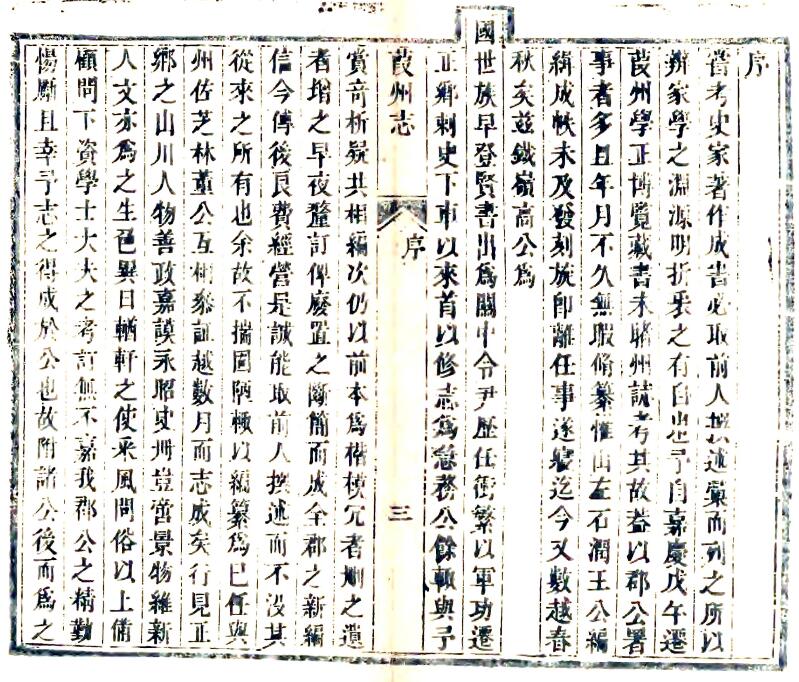 序
嘗考史家著作成書必取前人撰述彙而列之所以
辨家學之淵源明折衷之有自也予自嘉慶戊午遷
葭州學正博覽藏書未睹州誌考其故葢以郡公署
事者多且年月不久無暇脩纂惟山左石澗王公編
緝成帙未及發刻旋卽離任事遂寢迄今又數越春
秋矣茲鐵嶺高公爲
國世族早登賢書出爲關中令尹歷任衝繁以軍功遷
正鄉刺史下車以來首以修志爲急務公餘輙與予
葭州志
序
三
賞奇析疑共相編次仍以前本爲楷模冗者刪之遺
者增之早夜釐訂俾廢置之斷簡而成全郡之新編
信今傳後良費經營是誠能取前人撰述而不没其
從來之所有也余故不揣固陋輙以編纂爲已任與
州佐芝林董公互相叅証越數月而志成矣行見正
鄉之山川人物善政嘉謨永昭史册豈啻景物維新
人文亦爲之生色異日輶軒之使采風問俗以上備
顧問下資學士大夫之考訂無不嘉我郡公之精勤
惕厲且幸予志之得成於公也故附諸公後而爲之